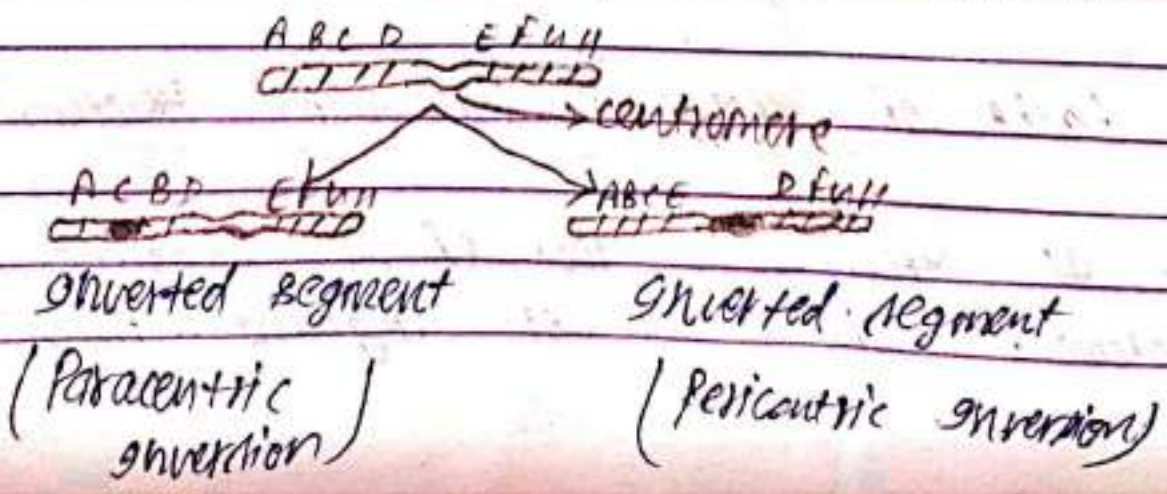 A B C D E F G H
centromere
A C B D E F G H
A B C E D F G H
Inverted segment Inverted segment
(Paracentric inversion) (Pericentric inversion)